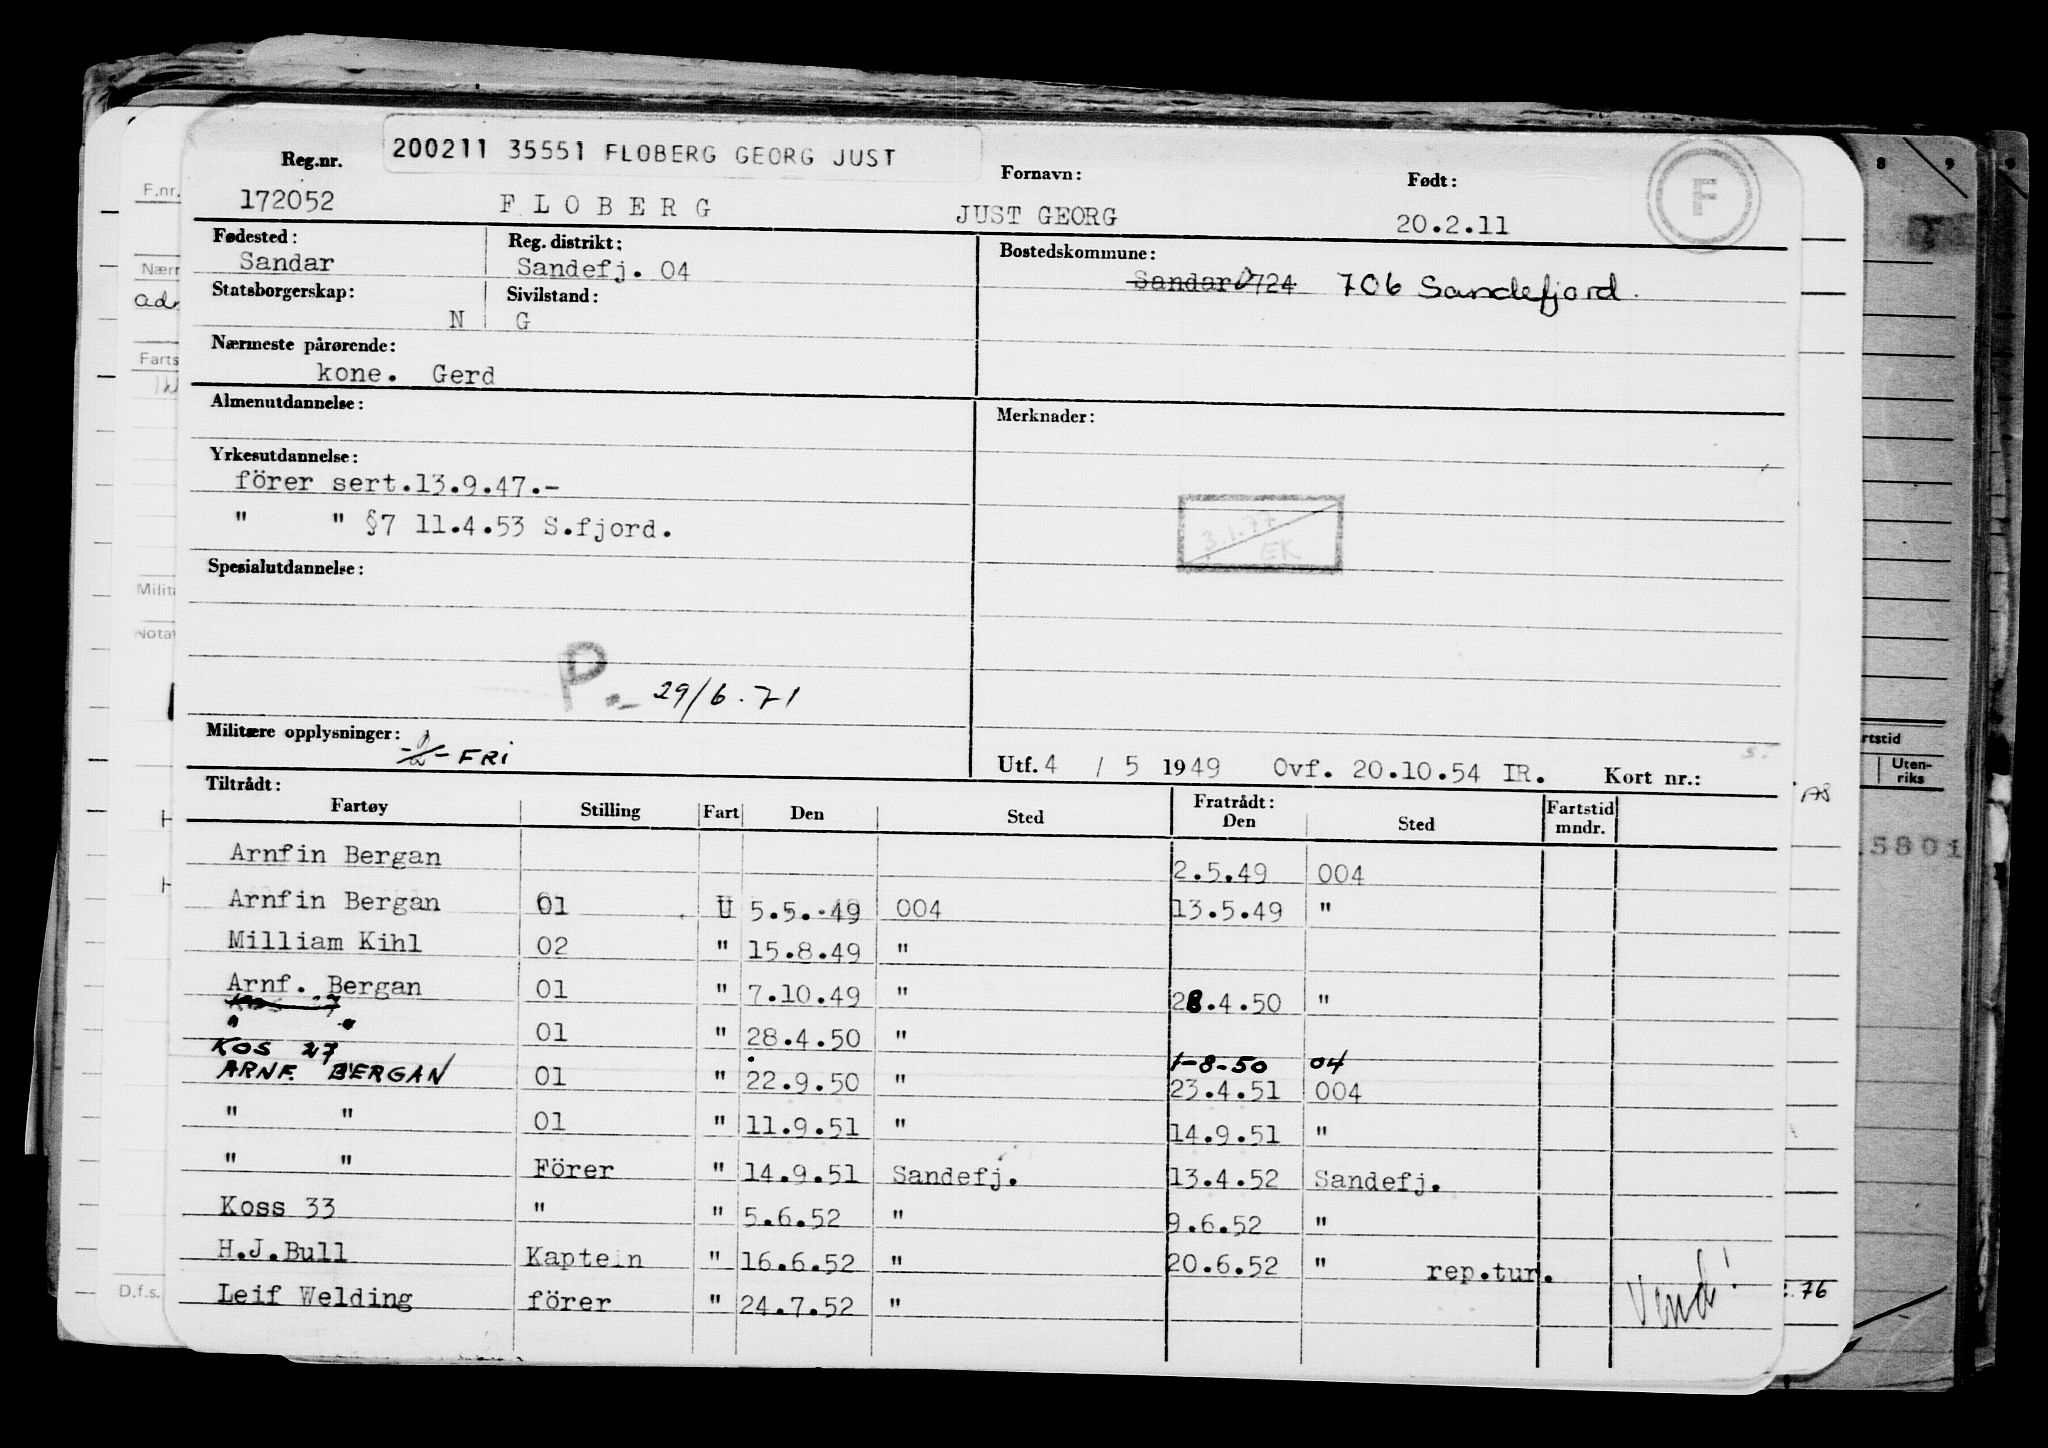 200211 35551 FLOBERG GEORG JUST
Reg.nr. Fornavn: Født:
172052 FLOBERG JUST GEORG 20.2.11
F
Fødested: Reg. distrikt: Bostedskommune:
Sandar Sandefj. 04 Sandar 0724 706 Sandefjord.
Statsborgerskap: Sivilstand:
N G
Nærmeste pårørende:
kone. Gerd
Almenutdannelse: Merknader:
Yrkesutdannelse:
förer sert.13.9.47.-
" " §7 11.4.53 S.fjord.
3.1.77
EK
Spesialutdannelse:
P.- 29/6.71
Militære opplysninger: FRI
Utf. 4 / 5 1949 Ovf. 20.10.54 IR. Kort nr.:
Tiltrådt: Fratrådt:
Fartøy Stilling Fart Den Sted Den Sted Fartstid mndr.
Arnfin Bergan 2.5.49 004
Arnfin Bergan 01 U 5.5.49 004 13.5.49 "
Milliam Kihl 02 " 15.8.49 "
Arnf. Bergan 01 " 7.10.49 " 28.4.50 "
" " 01 " 28.4.50 "
KOS 27 1-8-50 04
ARNF. BERGAN 01 " 22.9.50 " 23.4.51 004
" " 01 " 11.9.51 " 14.9.51 "
" " Förer " 14.9.51 Sandefj. 13.4.52 Sandefj.
Koss 33 " " 5.6.52 " 9.6.52 "
H.J.Bull Kaptein " 16.6.52 " 20.6.52 " rep.tur.
Leif Welding förer " 24.7.52 "
Vend!
F.nr.
Nærm
adr
Farts
Milit
Notat
D.f.s.
8 9
rtstid
Uten-
riks
AS
5801
76